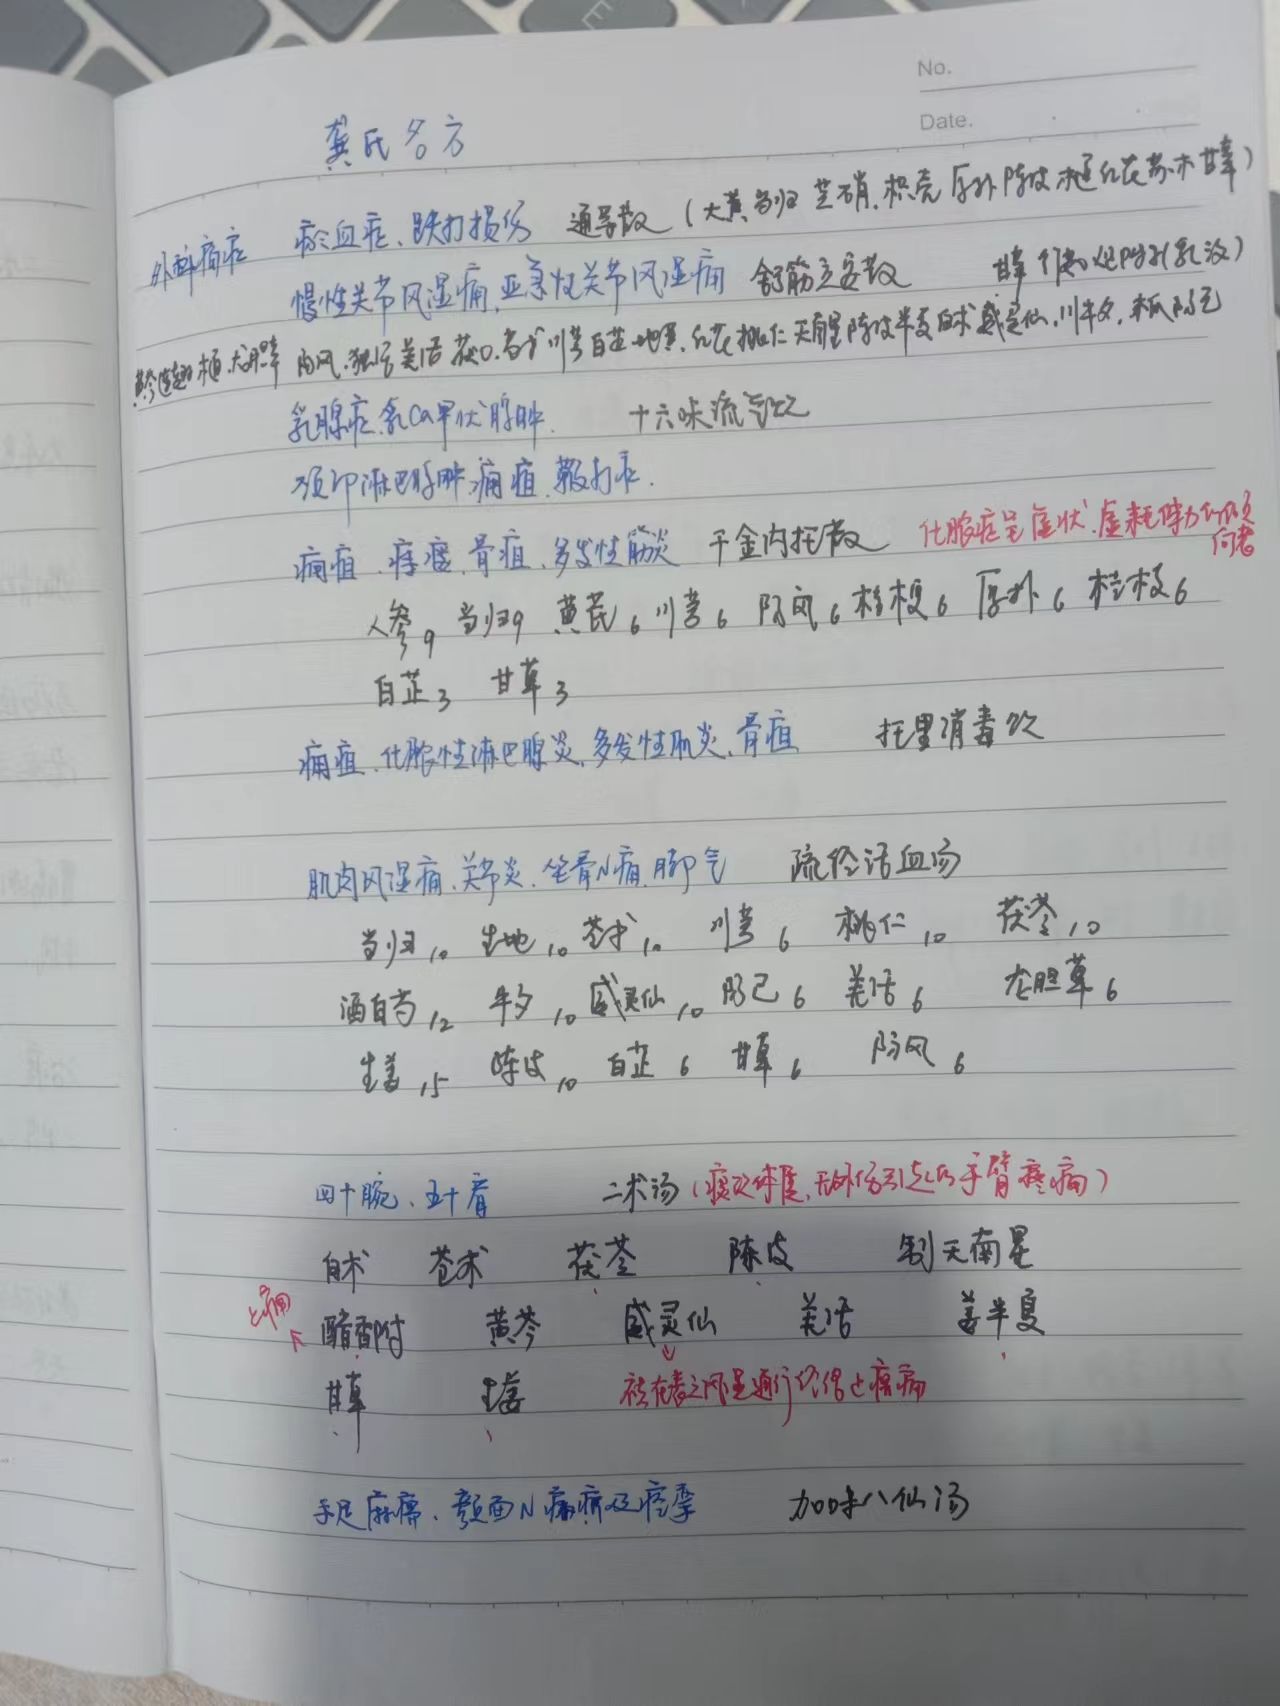 No.
Date.
龚氏名方
外科病症 瘀血症、跌打损伤 通导散（大黄 当归 芒硝、枳壳 厚朴 陈皮 木通 红花 苏木 甘草）
慢性关节风湿痛、亚急性关节风湿痛 舒筋立安散
防风、独活 羌活 茯〇、川芎 白芷 生地黄、红花 桃仁 天南星 陈皮 半夏 白术 威灵仙、川牛夕、木瓜 防己
乳腺症、乳Ca 甲状腺肿. 十六味流气饮
颈部淋巴腺肿 痈疽
痈疽、疔疮、骨疽、多发性筋炎 千金内托散 化脓症呈虚状、虚耗体力
人参9 当归9 黄芪6 川芎6 防风6 桔梗6 厚朴6 桂枝6
白芷3 甘草3
痈疽、化脓性淋巴腺炎、多发性肌炎、骨疽 托里消毒饮
肌肉风湿痛、关节炎、坐骨N痛、脚气 疏经活血汤
当归10 生地10 苍术10 川芎6 桃仁10 茯苓10
酒白芍12 牛夕10 威灵仙10 防己6 羌活6 龙胆草6
生姜15 陈皮10 白芷6 甘草6 防风6
四十腕、五十肩 二术汤（痰饮体质、无外伤引起的手臂疼痛）
白术 苍术 茯苓 陈皮 制天南星
止痛 醋香附 黄芩 威灵仙 羌活 姜半夏
甘草 生姜 祛在表之风湿通行经络止疼痛
手足麻痹、颜面N麻痹及痉挛 加味八仙汤